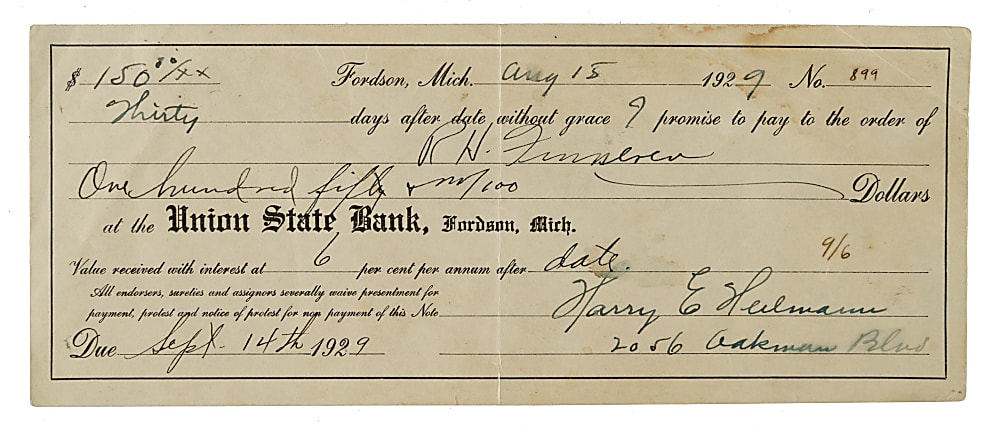 $ 150 00/xx Fordson, Mich. Aug 15 1929 No. 899
Thirty days after date, without grace I promise to pay to the order of
R H.
One hundred fifty & no/100 Dollars
at the Union State Bank, Fordson, Mich.
Value received with interest at 6 per cent per annum after date. 9/6
All endorsers, sureties and assignors severally waive presentment for
payment, protest and notice of protest for non payment of this Note Harry E Heilmann
Due Sept. 14th 1929 2056 Oakman Blvd